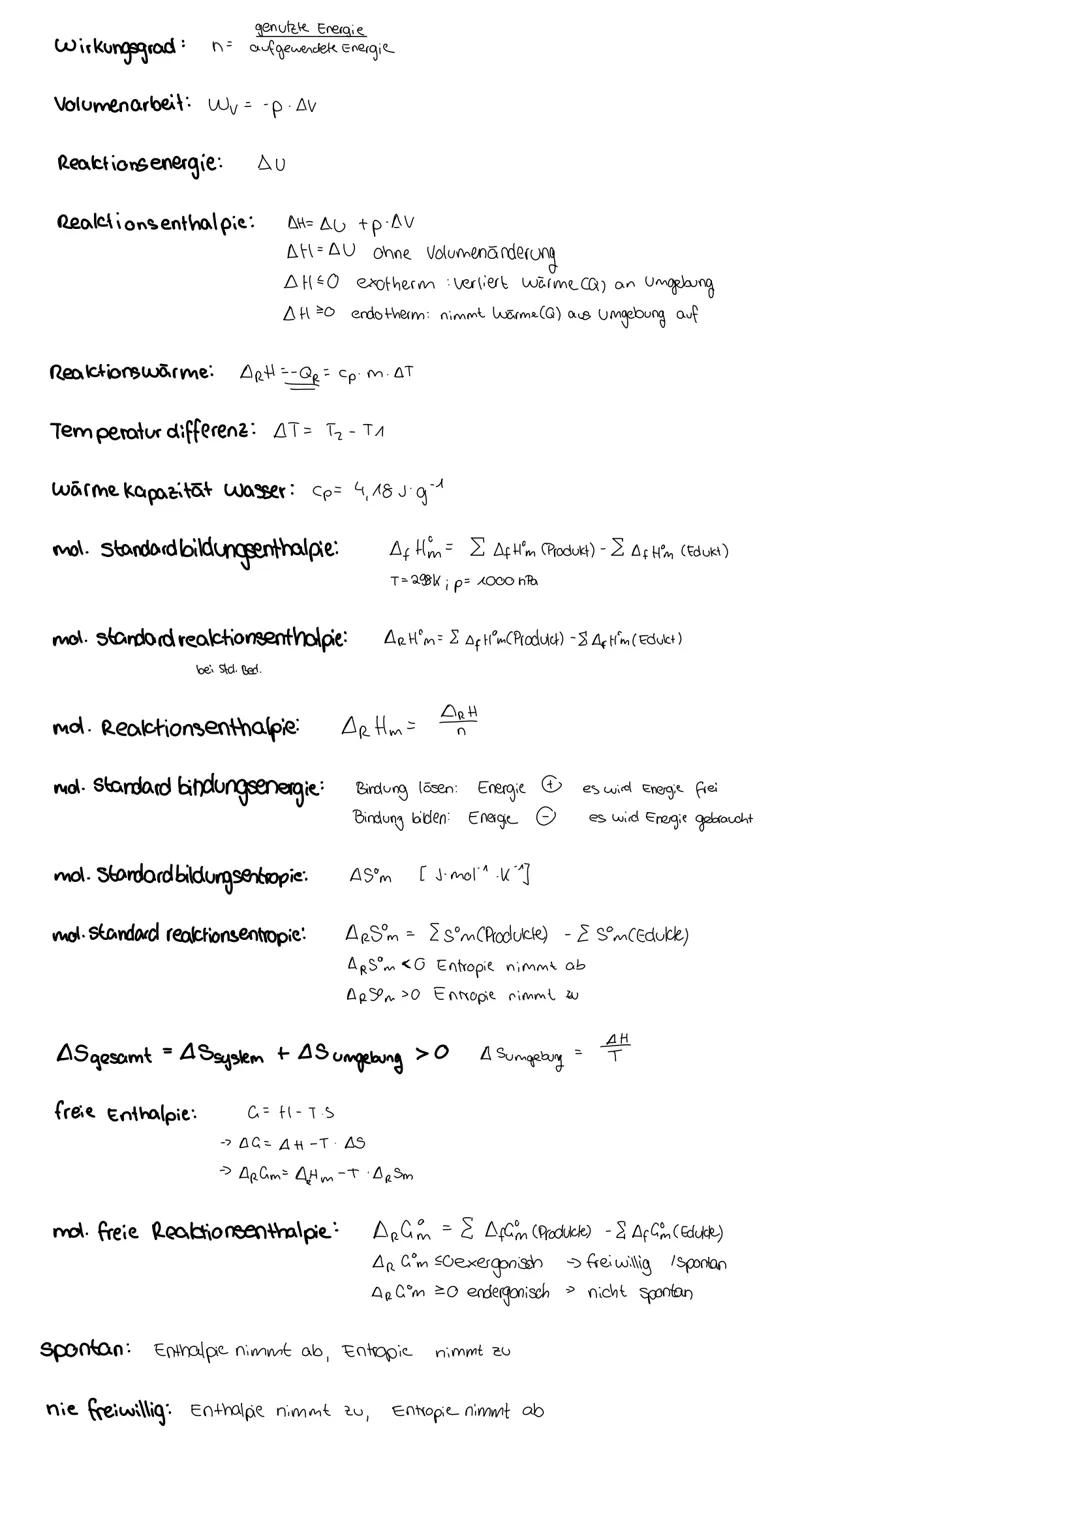 Wirkungsgrad: n= genutzte Energie
aufgewendete Energie
Volumenarbeit: Wv = -p · ΔV
Reaktionsenergie: ΔU
Reaktionsenthalpie: ΔH= ΔU +p·ΔV
ΔH=ΔU ohne Volumenänderung
ΔH≤0 exotherm : verliert Wärme(Q) an Umgebung
ΔH ≥0 endotherm: nimmt Wärme(Q) aus Umgebung auf
Reaktionswärme: ΔRH =-QR= cp· m · ΔT
Temperaturdifferenz: ΔT= T2 - T1
Wärmekapazität Wasser: cp= 4,18 J·g⁻¹
mol. Standardbildungsenthalpie: Δf H°m = Σ Δf H°m (Produkt) - Σ Δf H°m (Edukt)
T=298K ; p= 1000 hPa
mol. Standardreaktionsenthalpie: ΔR H°m = Σ Δf H°m (Produkt) - Σ Δf H°m (Edukt)
bei Std. Bed.
mol. Reaktionsenthalpie: ΔR Hm = ΔRH
n
mol. Standard bindungsenergie: Bindung lösen: Energie ⊕ es wird Energie frei
Bindung bilden: Energie ⊖ es wird Energie gebraucht
mol. Standardbildungsentropie: ΔS°m [ J·mol⁻¹ · K⁻¹]
mol. Standard reaktionsentropie: ΔRS°m = ΣS°m(Produkte) - Σ S°m(Edukte)
ΔRS°m <0 Entropie nimmt ab
ΔRS°m >0 Entropie nimmt zu
ΔSgesamt = ΔSsystem + ΔSumgebung >0 ΔSumgebung = ΔH
T
freie Enthalpie: G= H - T·S
-> ΔG= ΔH -T · ΔS
-> ΔRGm= ΔRHm -T · ΔRSm
mol. freie Reaktionsenthalpie: ΔRG°m = Σ ΔfG°m (Produkte) - Σ ΔfG°m (Edukte)
ΔR G°m ≤0 exergonisch -> freiwillig /spontan
ΔR G°m ≥0 endergonisch > nicht spontan
spontan: Enthalpie nimmt ab, Entropie nimmt zu
nie freiwillig: Enthalpie nimmt zu, Entropie nimmt ab